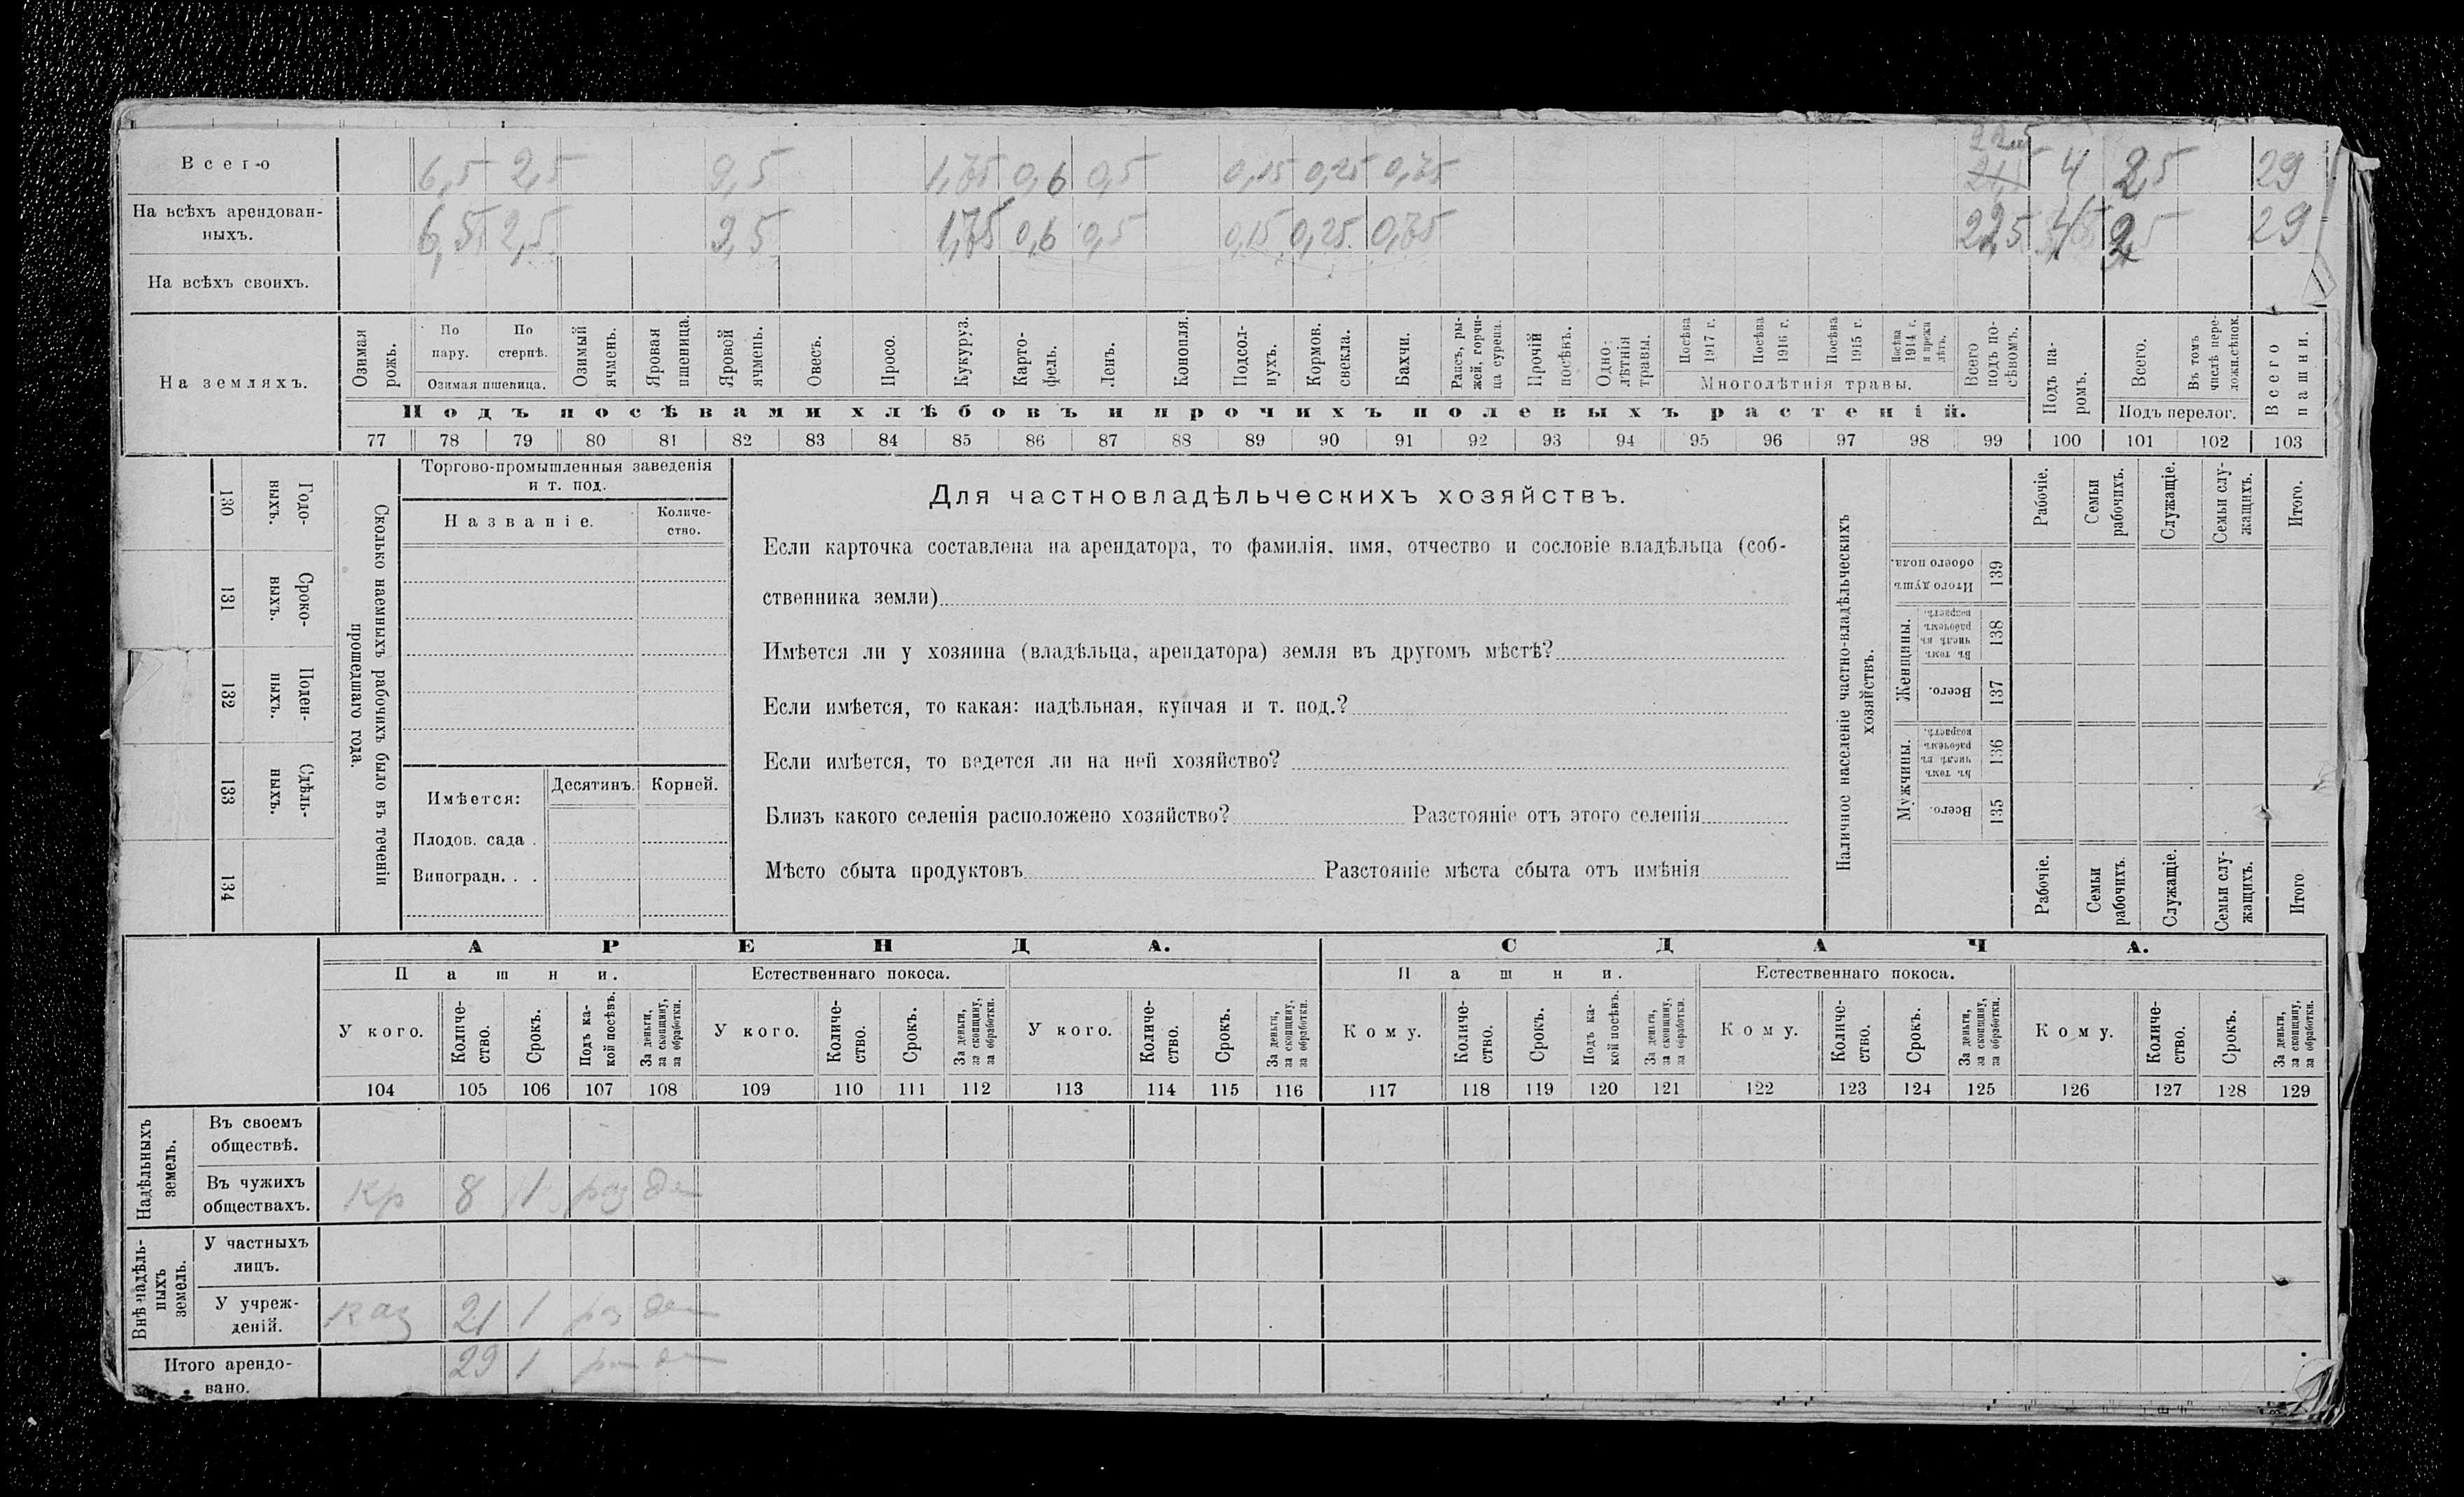 Всего 6,5 2,5 9,5 1,75 0,6 0,5 0,15 0,25 0,75 22,5 4 2,5 29
На всѣхъ арендован-
ныхъ. 6,5 2,5 9,5 1,75 0,6 0,5 0,15 0,25 0,75 22,5 4 2,5 29
На всѣхъ своихъ.
На земляхъ.
Озимая рожь.
По пару.
По стернѣ.
Озимая пшеница.
Озимый ячмень.
Яровая пшеница.
Яровой ячмень.
Овесъ.
Просо.
Кукуруз.
Карто-
фель.
Ленъ.
Конопля.
Подсол-
нухъ.
Кормов.
свекла.
Бахчи.
Рапсъ, ры-
жей, горчи-
ца сурепа.
Прочій
посѣвъ.
Одно-
лѣтнія
травы.
Посѣва
1917 г.
Посѣва
1916 г.
Посѣва
1915 г.
Посѣва
1914 г.
и прежн
лѣтъ.
Многолѣтнія травы.
Всего
подъ по-
сѣвомъ.
Подъ па-
ромъ.
Всего.
Въ томъ
числѣ пере-
ложн.сѣнок.
Подъ перелог.
Всего
пашни.
Подъ посѣвами хлѣбовъ и прочихъ полевыхъ растеній.
77 78 79 80 81 82 83 84 85 86 87 88 89 90 91 92 93 94 95 96 97 98 99 100 101 102 103
Сколько наемныхъ рабочихъ было въ теченіи
прошедшаго года.
Годо-
выхъ.
130
Сроко-
выхъ.
131
Поден-
ныхъ.
132
Сдѣль-
ныхъ.
133
134
Торгово-промышленныя заведенія
и т. под.
Названіе.
Количе-
ство.
Имѣется:
Десятинъ.
Корней.
Плодов. сада .
Виноградн. . .
Для частновладѣльческихъ хозяйствъ.
Если карточка составлена на арендатора, то фамилія, имя, отчество и сословіе владѣльца (соб-
ственника земли)
Имѣется ли у хозяина (владѣльца, арендатора) земля въ другомъ мѣстѣ?
Если имѣется, то какая: надѣльная, купчая и т. под.?
Если имѣется, то ведется ли на ней хозяйство?
Близъ какого селенія расположено хозяйство? Разстояніе отъ этого селенія
Мѣсто сбыта продуктовъ Разстояніе мѣста сбыта отъ имѣнія
Наличное населеніе частно-владѣльческихъ
хозяйствъ.
Рабочіе.
Семьи
рабочихъ.
Служащіе.
Семьи слу-
жащихъ.
Итого.
Итого душъ
обоего пола.
139
Женщины.
Въ томъ
числѣ въ
рабочемъ
возрастѣ.
138
Всего.
137
Мужчины.
Въ томъ
числѣ въ
рабочемъ
возрастѣ.
136
Всего.
135
Рабочіе.
Семьи
рабочихъ.
Служащіе.
Семьи слу-
жащихъ.
Итого
АРЕНДА.
СДАЧА.
Пашни.
Естественнаго покоса.
Пашни.
Естественнаго покоса.
У кого.
Количе-
ство.
Срокъ.
Подъ ка-
кой посѣвъ.
За деньги,
за скопщину,
за обработки.
У кого.
Количе-
ство.
Срокъ.
За деньги,
за скопщину,
за обработки.
У кого.
Количе-
ство.
Срокъ.
За деньги,
за скопщину,
за обработки.
Кому.
Количе-
ство.
Срокъ.
Подъ ка-
кой посѣвъ.
За деньги,
за скопщину,
за обработки.
Кому.
Количе-
ство.
Срокъ.
За деньги,
за скопщину,
за обработки.
Кому.
Количе-
ство.
Срокъ.
За деньги,
за скопщину,
за обработки.
104 105 106 107 108 109 110 111 112 113 114 115 116 117 118 119 120 121 122 123 124 125 126 127 128 129
Надѣльныхъ
земель.
Въ своемъ
обществѣ.
Въ чужихъ
обществахъ.
Кр 8 1 раз ден
Внѣ-надѣль-
ныхъ
земель.
У частныхъ
лицъ.
У учреж-
деній.
каз 21 1 раз ден
Итого арендо-
вано.
29 1